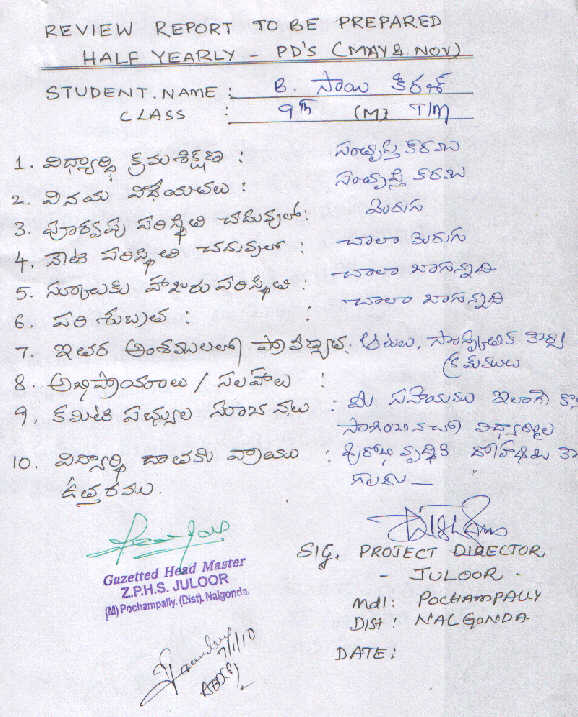 REVIEW REPORT TO BE PREPARED
HALF YEARLY - PD'S (MAY & NOV)
STUDENT NAME : B. సాయి కిరణ్
CLASS : 9th (M) T/M
1. విద్యార్థి క్రమశిక్షణ : సంతృప్తి కరము
2. వినయ విధేయతలు : సంతృప్తి కరము
3. పూర్వపు పరిస్థితి చదువులో: మెరుగు
4. నేటి పరిస్థితి చదువులో : చాలా మెరుగు
5. స్కూలుకు హాజరు పరిస్థితి : చాలా బాగున్నది
6. పరిశుభ్రత : : చాలా బాగున్నది
7. ఇతర అంశములలో ప్రావీణ్యత. ఆటలు, సాంస్కృతిక
8. అభిప్రాయాలు / సలహాలు :
9. కమిటి సభ్యుల సూచనలు : మీ సహాయము ఇలాగే
విద్యార్థుల
10. విద్యార్థి దాతకు వ్రాయు :
ఉత్తరము.
SIG, PROJECT DIRECTOR
- JULOOR.
Gazetted Head Master
Z.P.H.S. JULOOR
(M) Pochampally, (Dist). Nalgonda.
Mdl: POCHAMPALLY
DIST: NALGONDA
DATE: